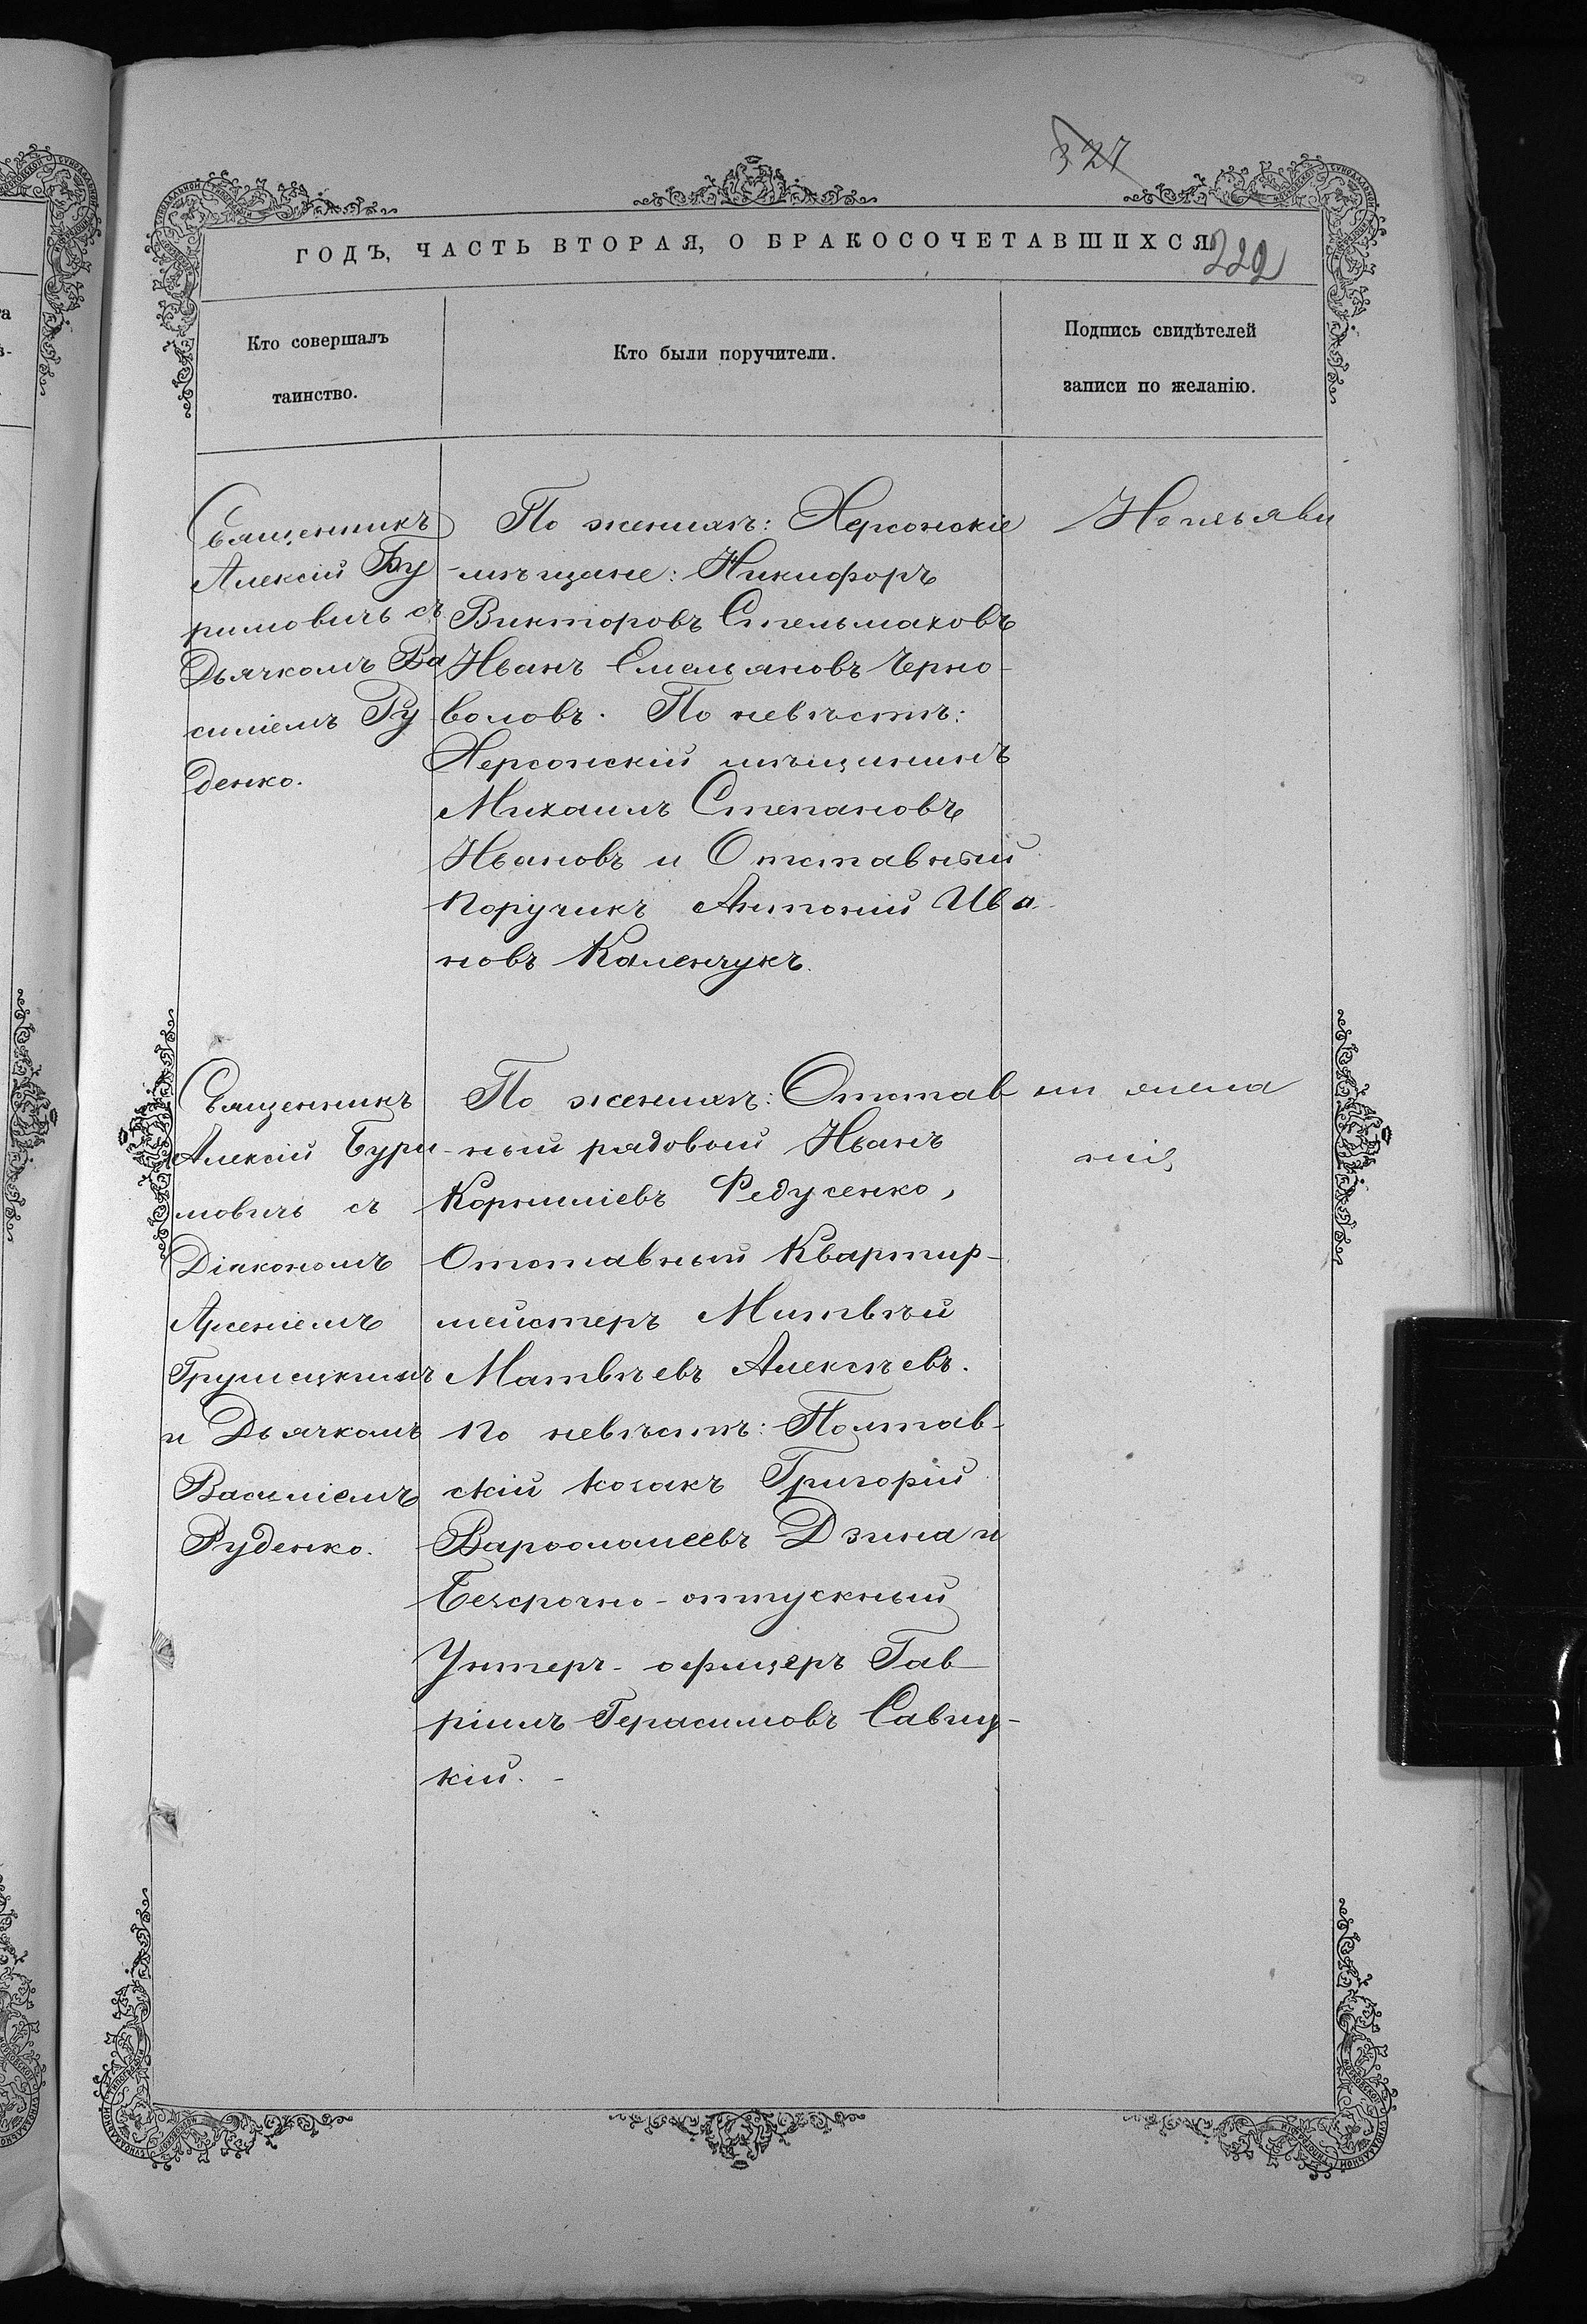 327
ГОДЪ, ЧАСТЬ ВТОРАЯ, О БРАКОСОЧЕТАВШИХСЯ.
222
Кто совершалъ
таинство.
Кто были поручители.
Подпись свидѣтелей
записи по желанію.
Священникъ
Алексій Бу
римовичъ съ
Дьячкомъ Ва
силіемъ Ру
денко.
По женихѣ: Херсонскіе
мѣщане: Никифоръ
Викторовъ Стельмаховъ
Иванъ Емельяновъ Черно-
воловъ. По невѣстѣ:
Херсонскій мѣщининъ
Михаилъ Степановъ
Ивановъ и Отставный
Поручикъ Антоній Ива
новъ Каленчукъ.
Неизъяви
Священникъ
Алексій Бури-
мовичъ съ
Діакономъ
Арсеніемъ
Грушецкимъ
и Дьячкомъ
Василіемъ
Руденко.
По женихѣ: Отстав
ный рядовой Иванъ
Корниліевъ Федусенко,
Отставный Квартир-
мейстеръ Митвѣй
Матвѣевъ Алексѣевъ.
По невѣстѣ: Полтав-
скій козакъ Григорій
Варѳоломеевъ Дзина и
Безсрочно-отпускный
Унтеръ-офицеръ Гав-
ріилъ Герасимовъ Савиц-
кій. -
ли жела
нія